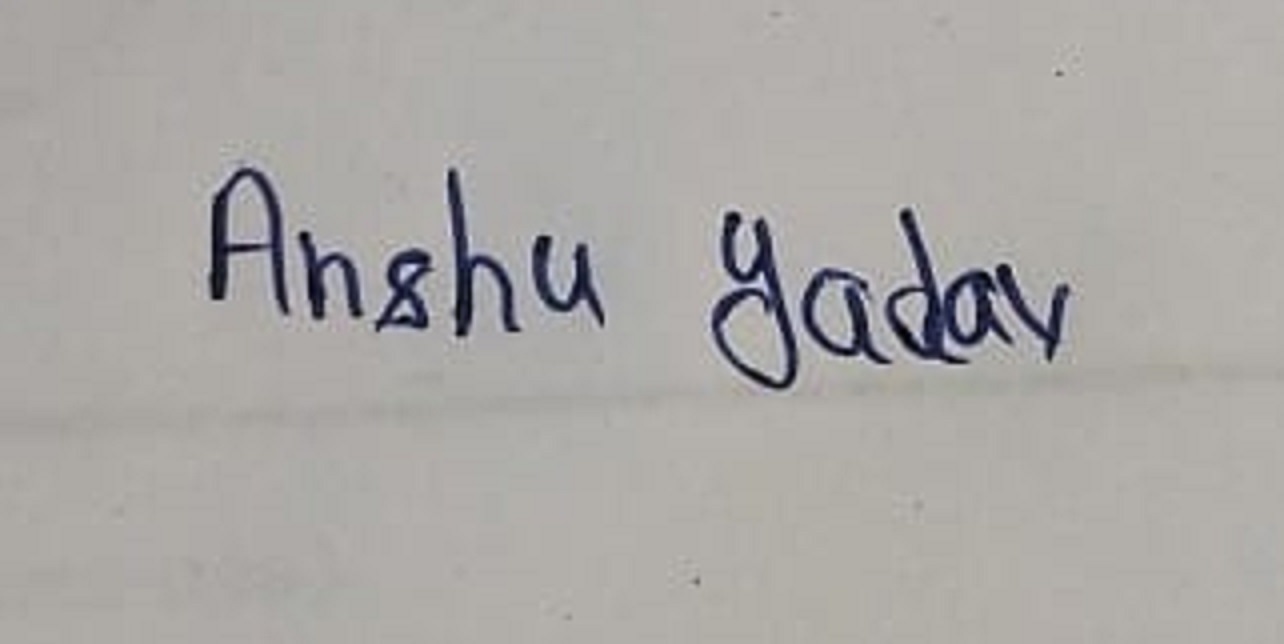 Anshu Yadav